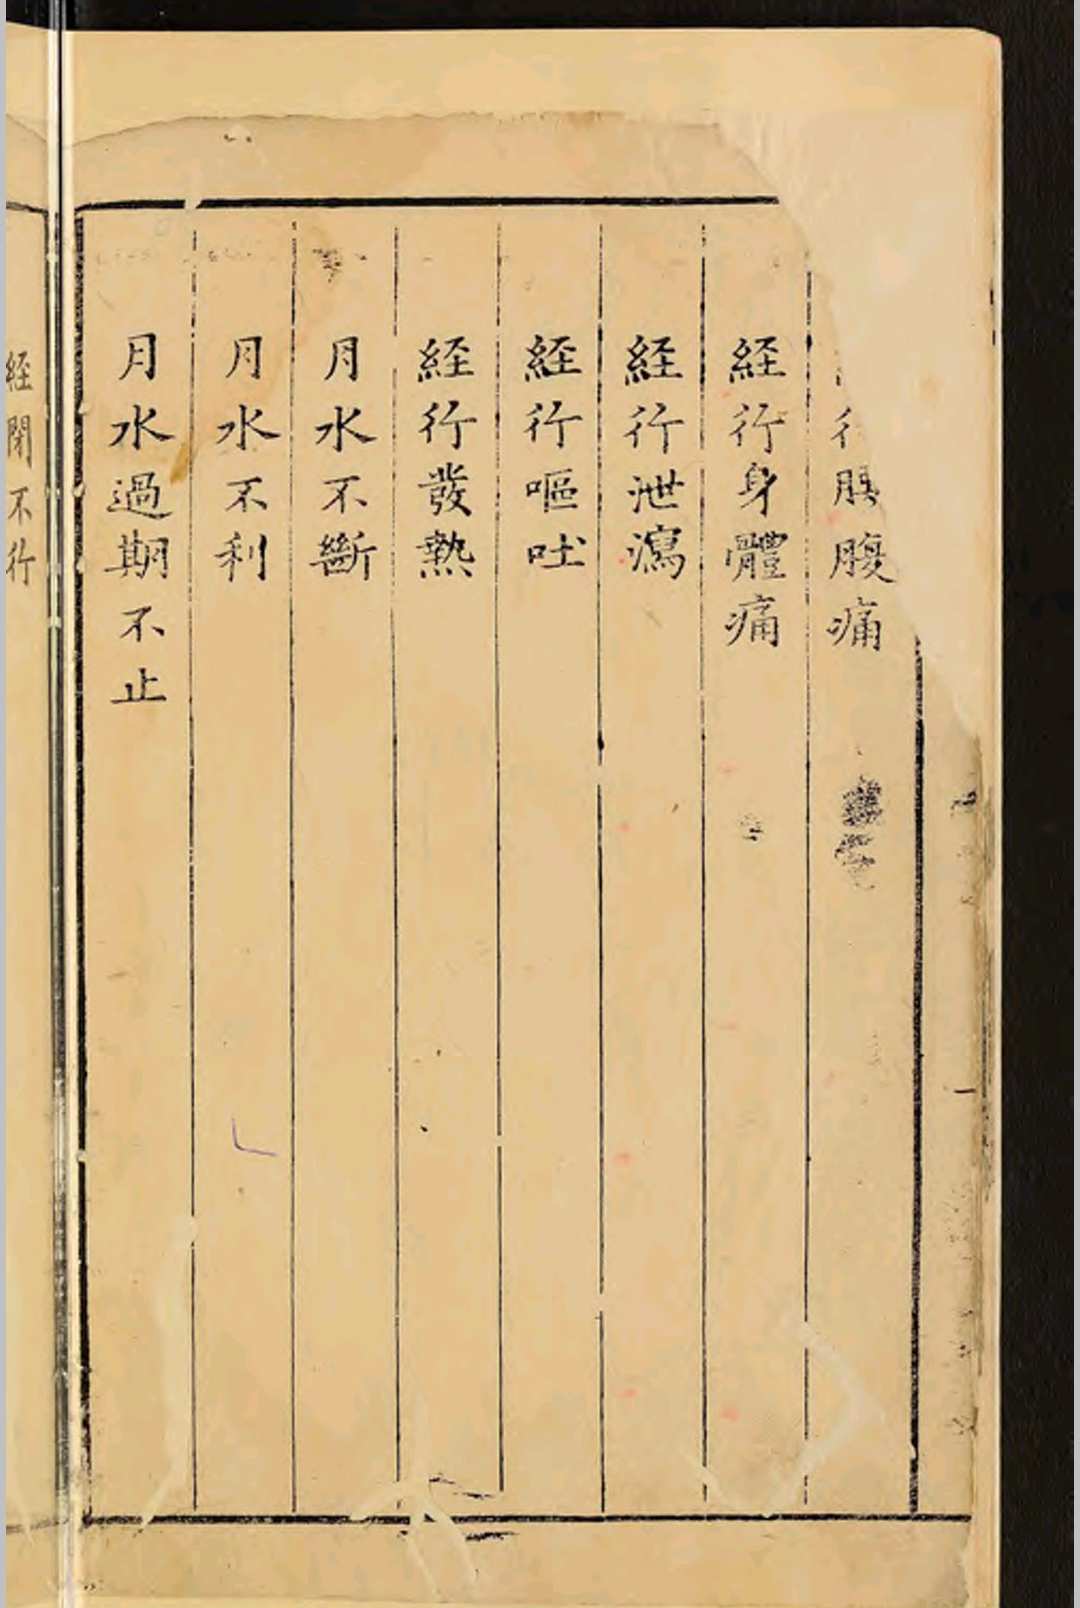 行腰腹痛
経行身體痛
経行泄瀉
経行嘔吐
経行發熱
月水不斷
月水不利
月水過期不止
経閉不行